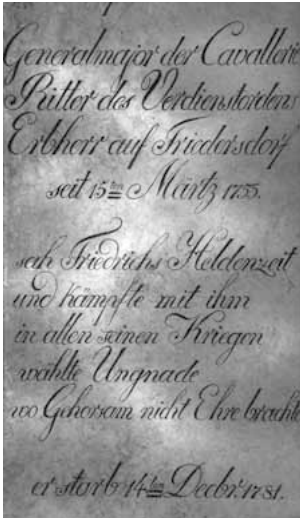 Generalmajor der Cavallerie
Ritter des Verdienstordens
Erbherr auf Friedersdorf
seit 15ten Märtz 1755.
sah Friedrichs Heldenzeit
und kämpfte mit ihm
in allen seinen Kriegen
wählte Ungnade
wo Gehorsam nicht Ehre brachte
er starb 14ten Decbr. 1781.